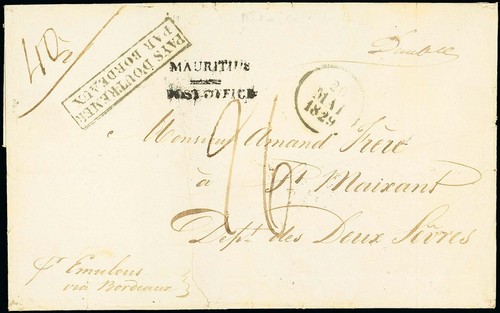 PAYS D'OUTREMER
PAR BORDEAUX
MAURITIUS
POST OFFICE
Double
MAI
1829
Monsieur Amand Frère
à St Maixant
Dépt des Deux Sèvres
26
pr Emulous
via Bordeaux